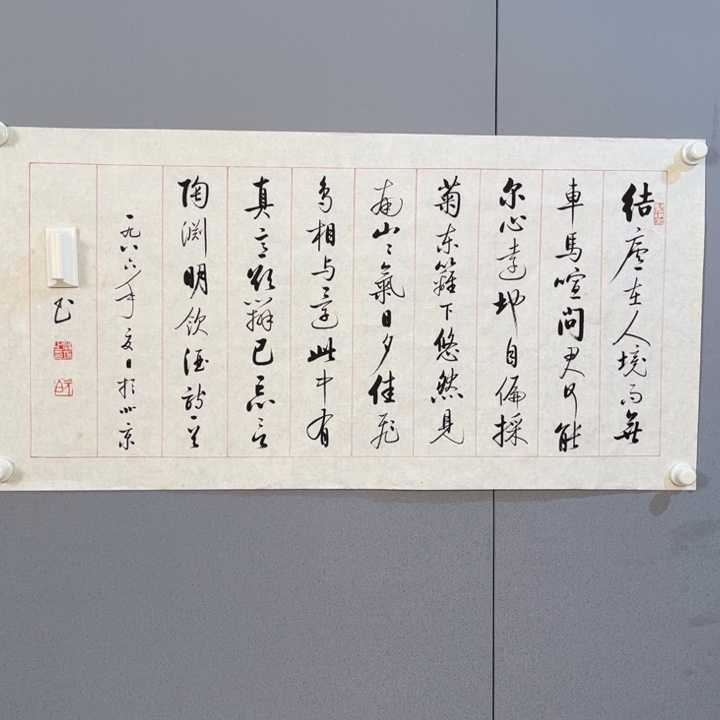 结廬在人境而無
車馬喧問君何能
尔心遠地自偏採
菊東籬下悠然見
南山〻氣日夕佳飛
鳥相与還此中有
真意欲辨已忘言
陶淵明飲酒詩一首
一九八六年夏日於北京
书